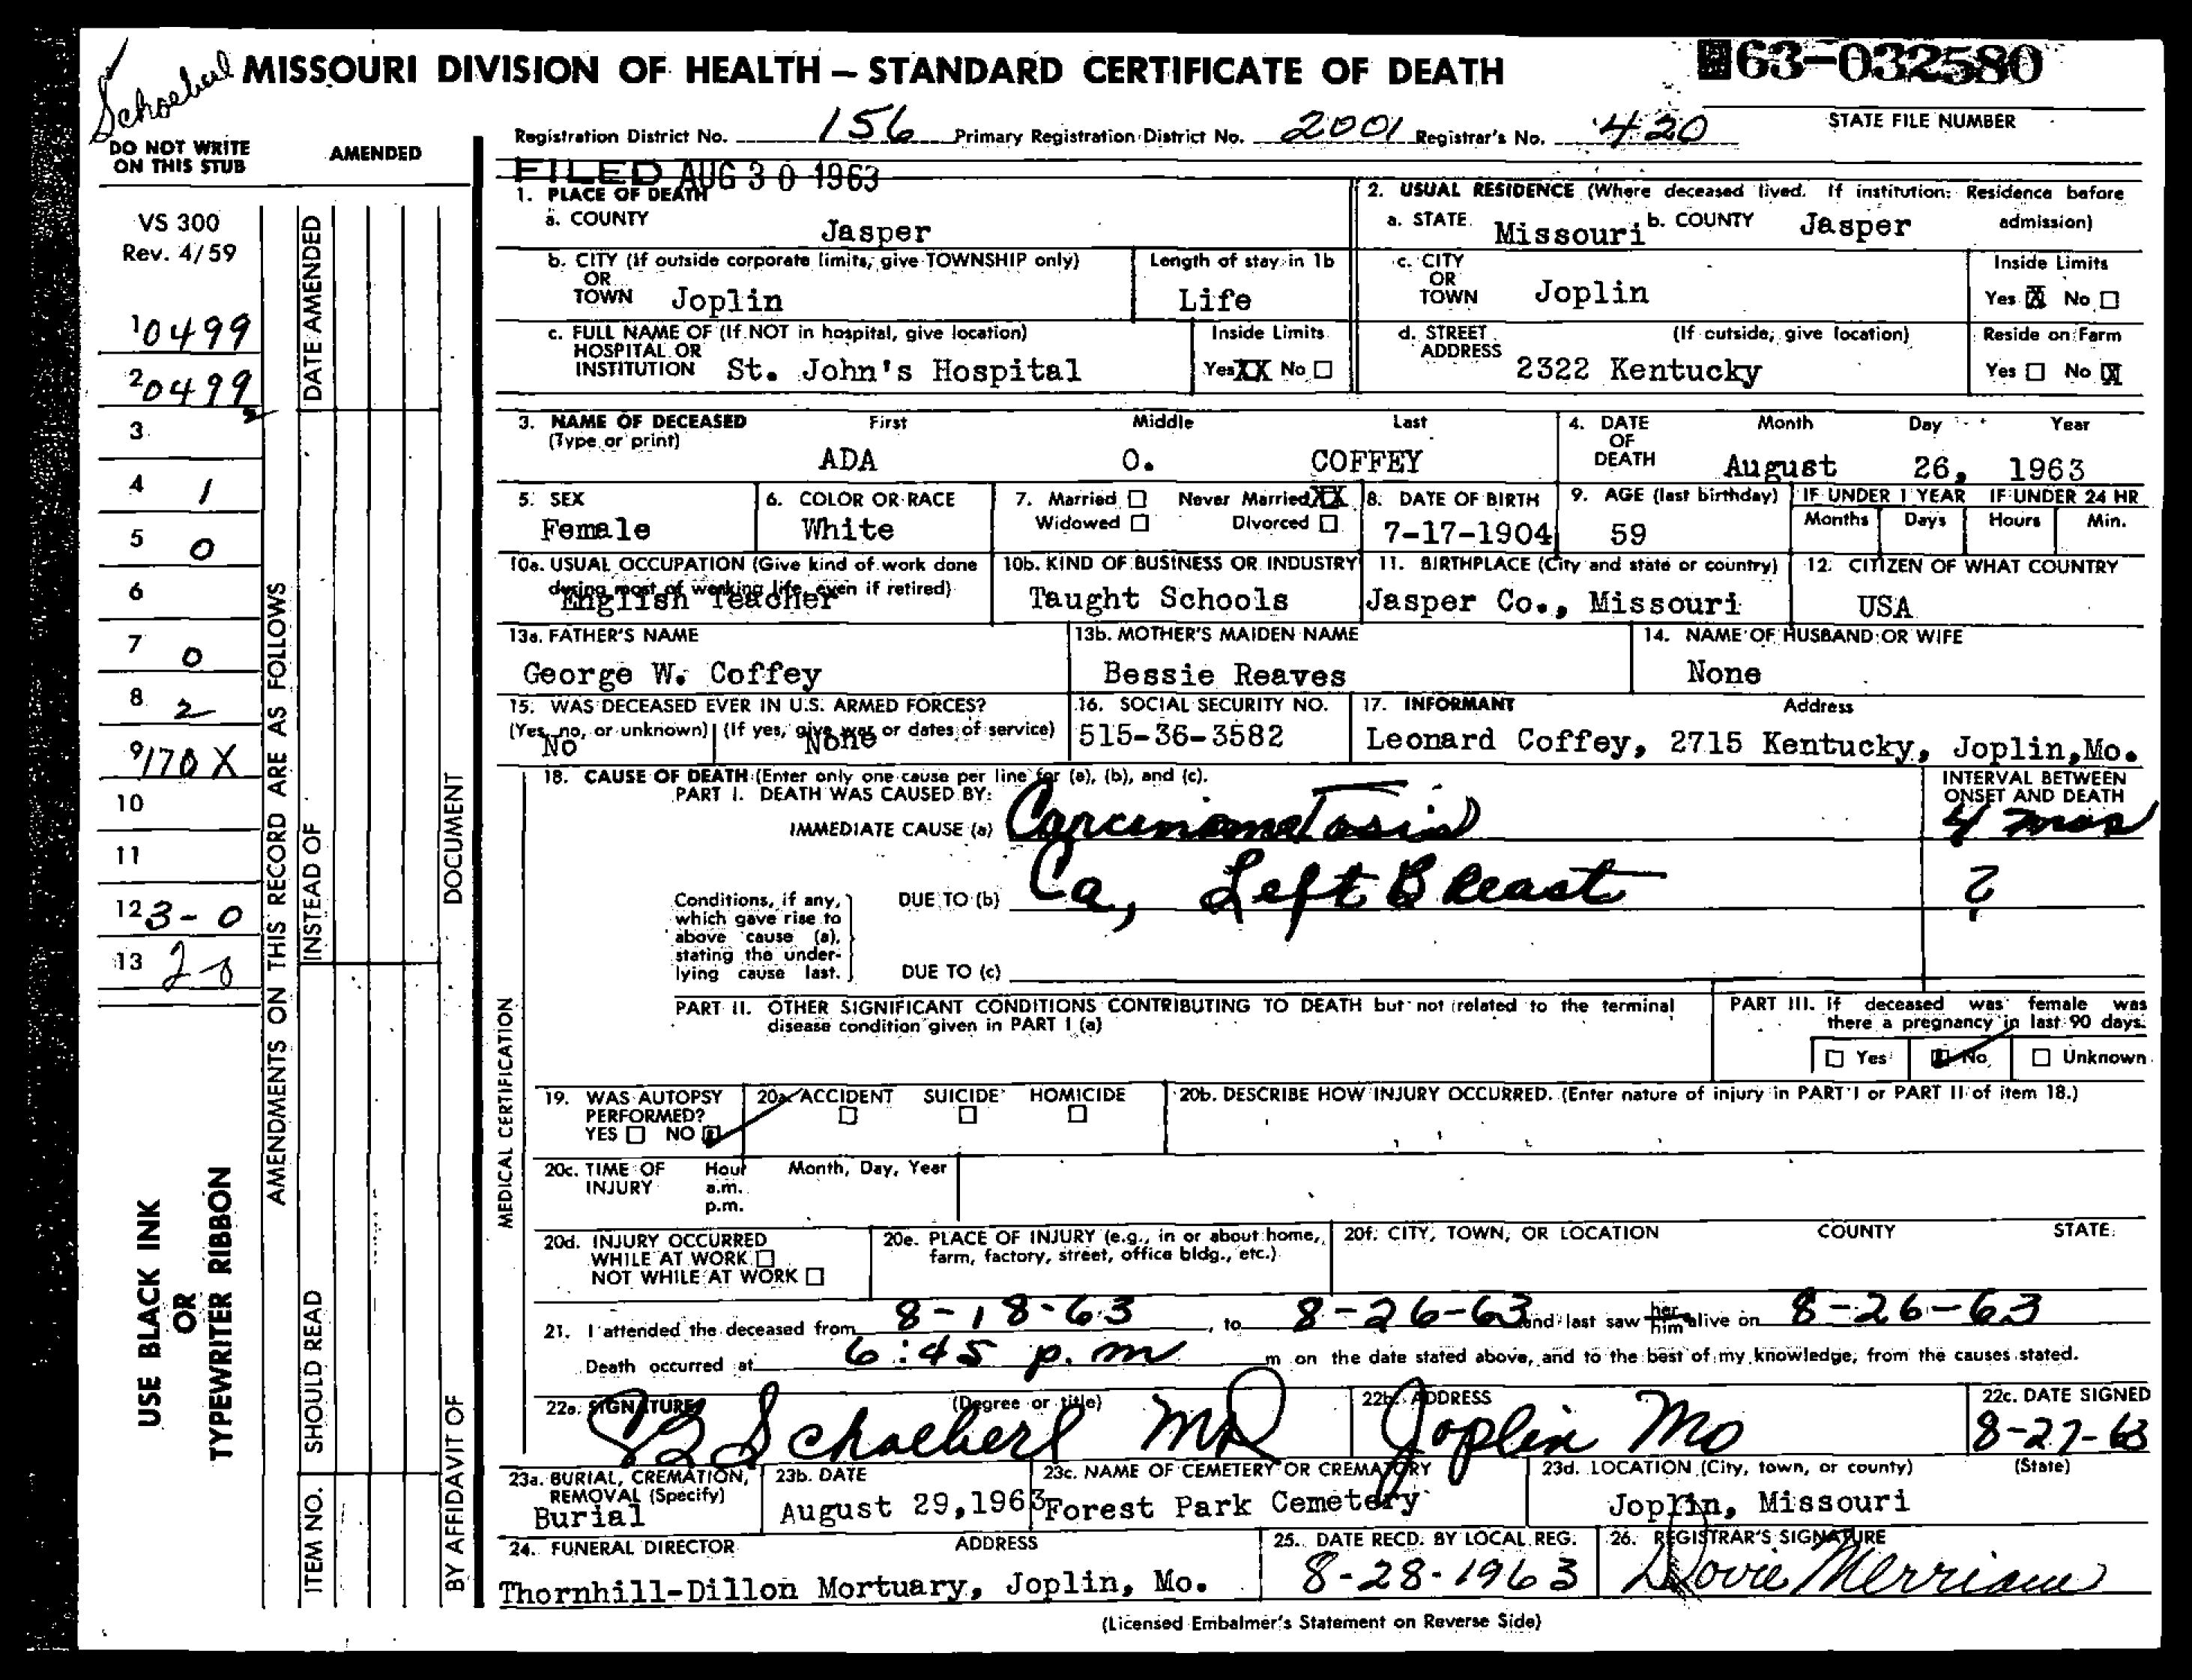 Schoeberl
MISSOURI DIVISION OF HEALTH – STANDARD CERTIFICATE OF DEATH
63-032580
STATE FILE NUMBER
Registration District No. 156 Primary Registration District No. 2001 Registrar's No. 420
DO NOT WRITE ON THIS STUB
AMENDED
FILED AUG 30 1963
VS 300
Rev. 4/59
1 0499
2 0499
3
4 1
5 0
6
7 0
8 2
9 170X
10
11
12 3-0
13
USE BLACK INK
OR
TYPEWRITER RIBBON
AMENDMENTS ON THIS RECORD ARE AS FOLLOWS
DATE AMENDED
INSTEAD OF
SHOULD READ
ITEM NO.
DOCUMENT
BY AFFIDAVIT OF
MEDICAL CERTIFICATION
1. PLACE OF DEATH
a. COUNTY Jasper
b. CITY (If outside corporate limits, give TOWNSHIP only) OR TOWN Joplin
Length of stay in 1b Life
c. FULL NAME OF (If NOT in hospital, give location) HOSPITAL OR INSTITUTION St. John's Hospital
Inside Limits Yes XX No
2. USUAL RESIDENCE (Where deceased lived. If institution: Residence before admission)
a. STATE Missouri b. COUNTY Jasper
c. CITY OR TOWN Joplin
Inside Limits Yes X No
d. STREET ADDRESS (If outside, give location) 2322 Kentucky
Reside on Farm Yes No X
3. NAME OF DECEASED (Type or print) First Middle Last
ADA O. COFFEY
4. DATE OF DEATH Month Day Year
August 26, 1963
5. SEX Female
6. COLOR OR RACE White
7. Married Never Married XX Widowed Divorced
8. DATE OF BIRTH 7-17-1904
9. AGE (last birthday) 59
IF UNDER 1 YEAR Months Days
IF UNDER 24 HR Hours Min.
10a. USUAL OCCUPATION (Give kind of work done during most of working life, even if retired) English Teacher
10b. KIND OF BUSINESS OR INDUSTRY Taught Schools
11. BIRTHPLACE (City and state or country) Jasper Co., Missouri
12. CITIZEN OF WHAT COUNTRY USA
13a. FATHER'S NAME George W. Coffey
13b. MOTHER'S MAIDEN NAME Bessie Reaves
14. NAME OF HUSBAND OR WIFE None
15. WAS DECEASED EVER IN U.S. ARMED FORCES? (Yes, no, or unknown) (If yes, give war or dates of service) No None
16. SOCIAL SECURITY NO. 515-36-3582
17. INFORMANT Address
Leonard Coffey, 2715 Kentucky, Joplin, Mo.
18. CAUSE OF DEATH (Enter only one cause per line for (a), (b), and (c).
PART I. DEATH WAS CAUSED BY:
INTERVAL BETWEEN ONSET AND DEATH
IMMEDIATE CAUSE (a) Carcinomatosis 4 mos
Conditions, if any, which gave rise to above cause (a), stating the underlying cause last.
DUE TO (b) Ca, Left Breast ?
DUE TO (c)
PART II. OTHER SIGNIFICANT CONDITIONS CONTRIBUTING TO DEATH but not related to the terminal disease condition given in PART I (a)
PART III. If deceased was female was there a pregnancy in last 90 days.
Yes No Unknown
19. WAS AUTOPSY PERFORMED? YES NO
20a. ACCIDENT SUICIDE HOMICIDE
20b. DESCRIBE HOW INJURY OCCURRED. (Enter nature of injury in PART I or PART II of item 18.)
20c. TIME OF INJURY Hour a.m. p.m. Month, Day, Year
20d. INJURY OCCURRED WHILE AT WORK NOT WHILE AT WORK
20e. PLACE OF INJURY (e.g., in or about home, farm, factory, street, office bldg., etc.)
20f. CITY, TOWN, OR LOCATION COUNTY STATE
21. I attended the deceased from 8-18-63, to 8-26-63 and last saw her him alive on 8-26-63
Death occurred at 6:45 p.m m on the date stated above, and to the best of my knowledge, from the causes stated.
22a. SIGNATURE (Degree or title) Schoeberl MD
22b. ADDRESS Joplin Mo
22c. DATE SIGNED 8-27-63
23a. BURIAL, CREMATION, REMOVAL (Specify) Burial
23b. DATE August 29, 1963
23c. NAME OF CEMETERY OR CREMATORY Forest Park Cemetery
23d. LOCATION (City, town, or county) (State) Joplin, Missouri
24. FUNERAL DIRECTOR ADDRESS
Thornhill-Dillon Mortuary, Joplin, Mo.
25. DATE RECD. BY LOCAL REG. 8-28-1963
26. REGISTRAR'S SIGNATURE Dovie Merriam
(Licensed Embalmer's Statement on Reverse Side)